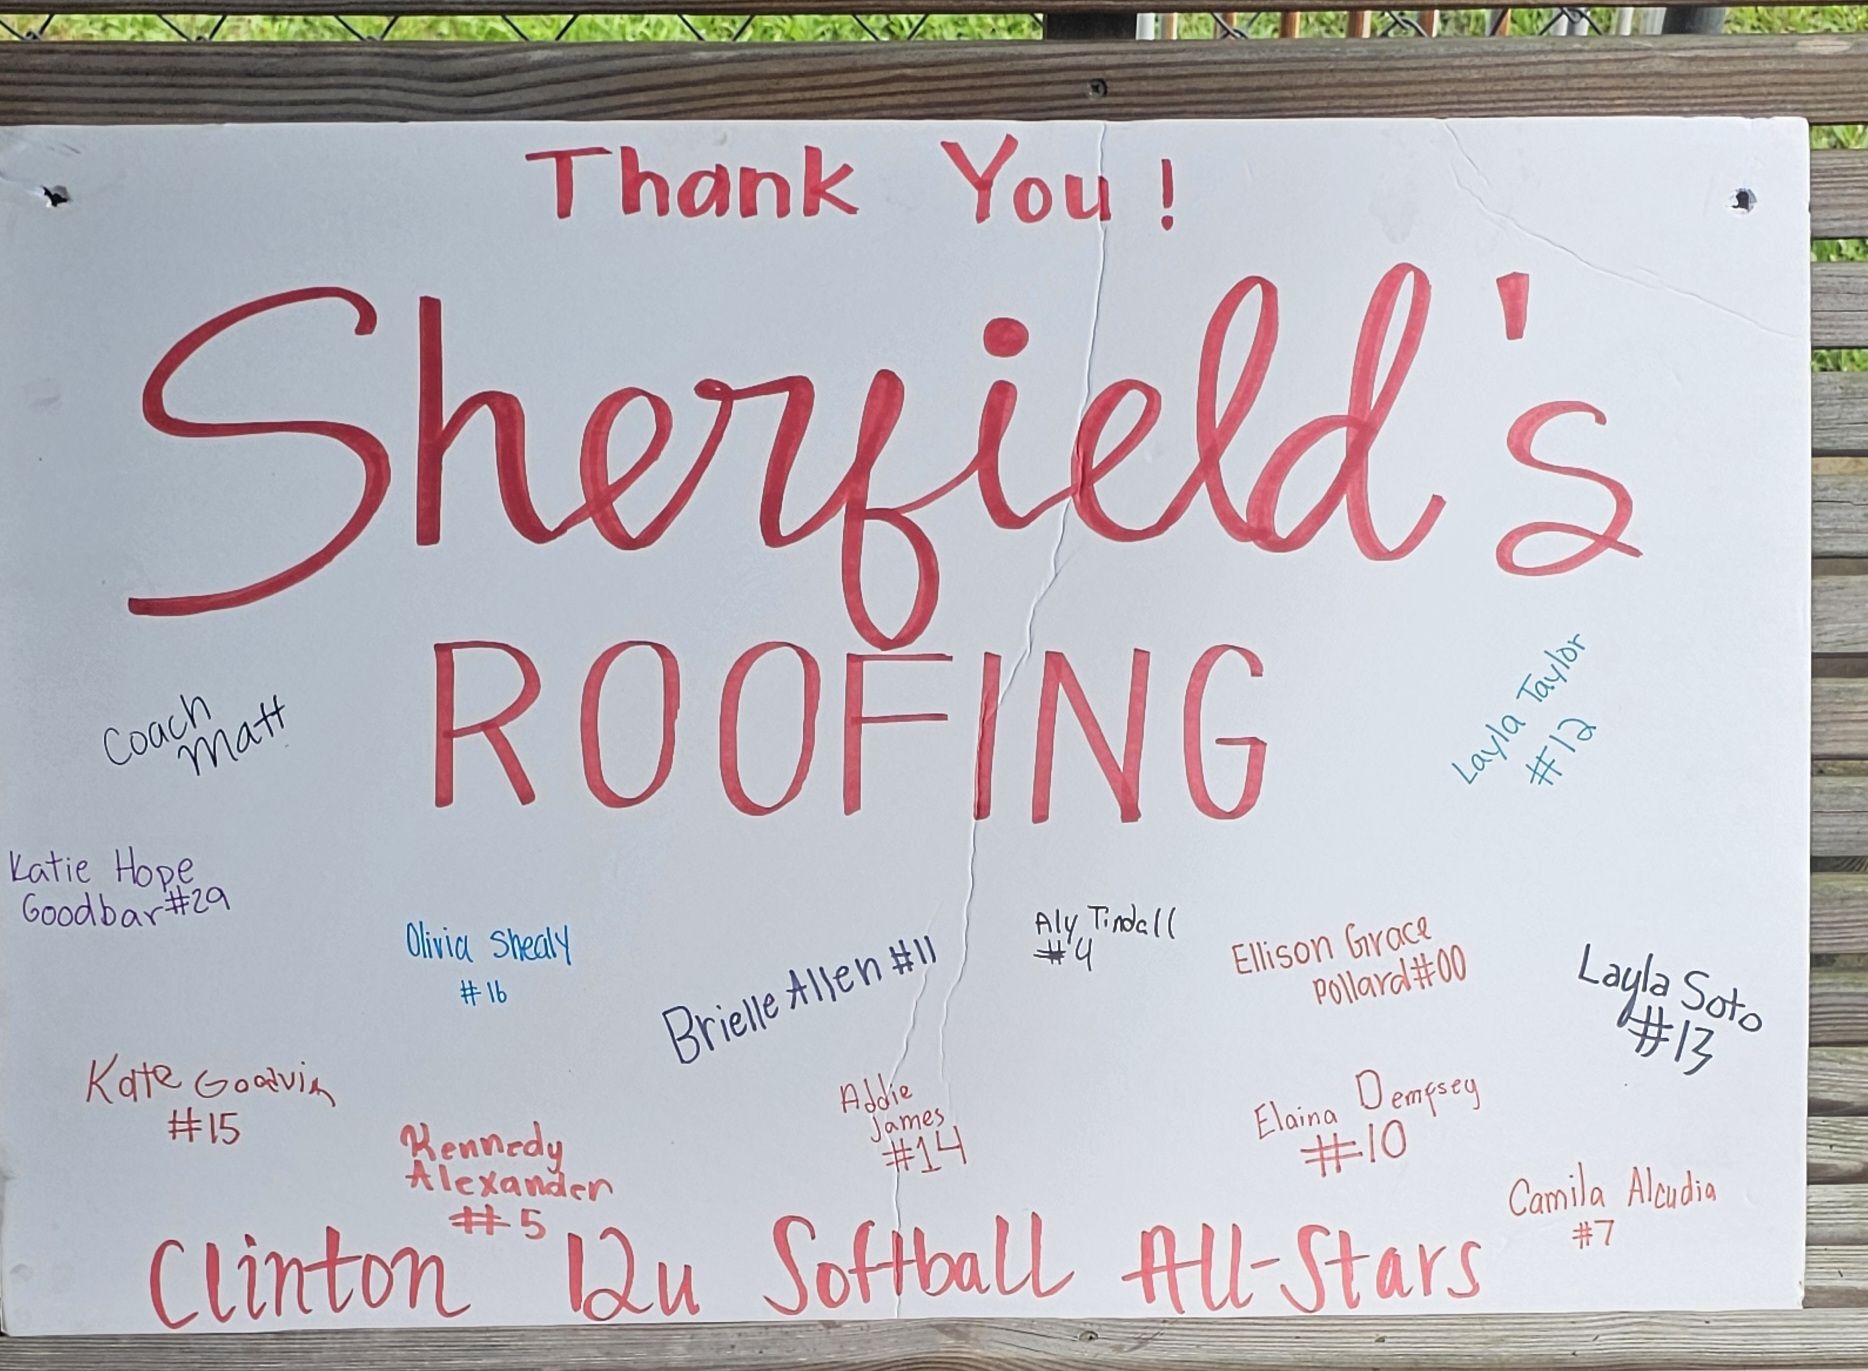 Thank You!
Sherfield's
ROOFING
Coach
Matt
Layla Taylor
#12
Katie Hope
Goodbar #29
Olivia Shealy
#16
Brielle Allen #11
Aly Tindall
#4
Ellison Grace
Pollard #00
Layla Soto
#13
Kate Goodvin
#15
Kennedy
Alexander
#5
Addie
James
#14
Elaina Dempsey
#10
Camila Alcudia
#7
Clinton 12u Softball All-Stars